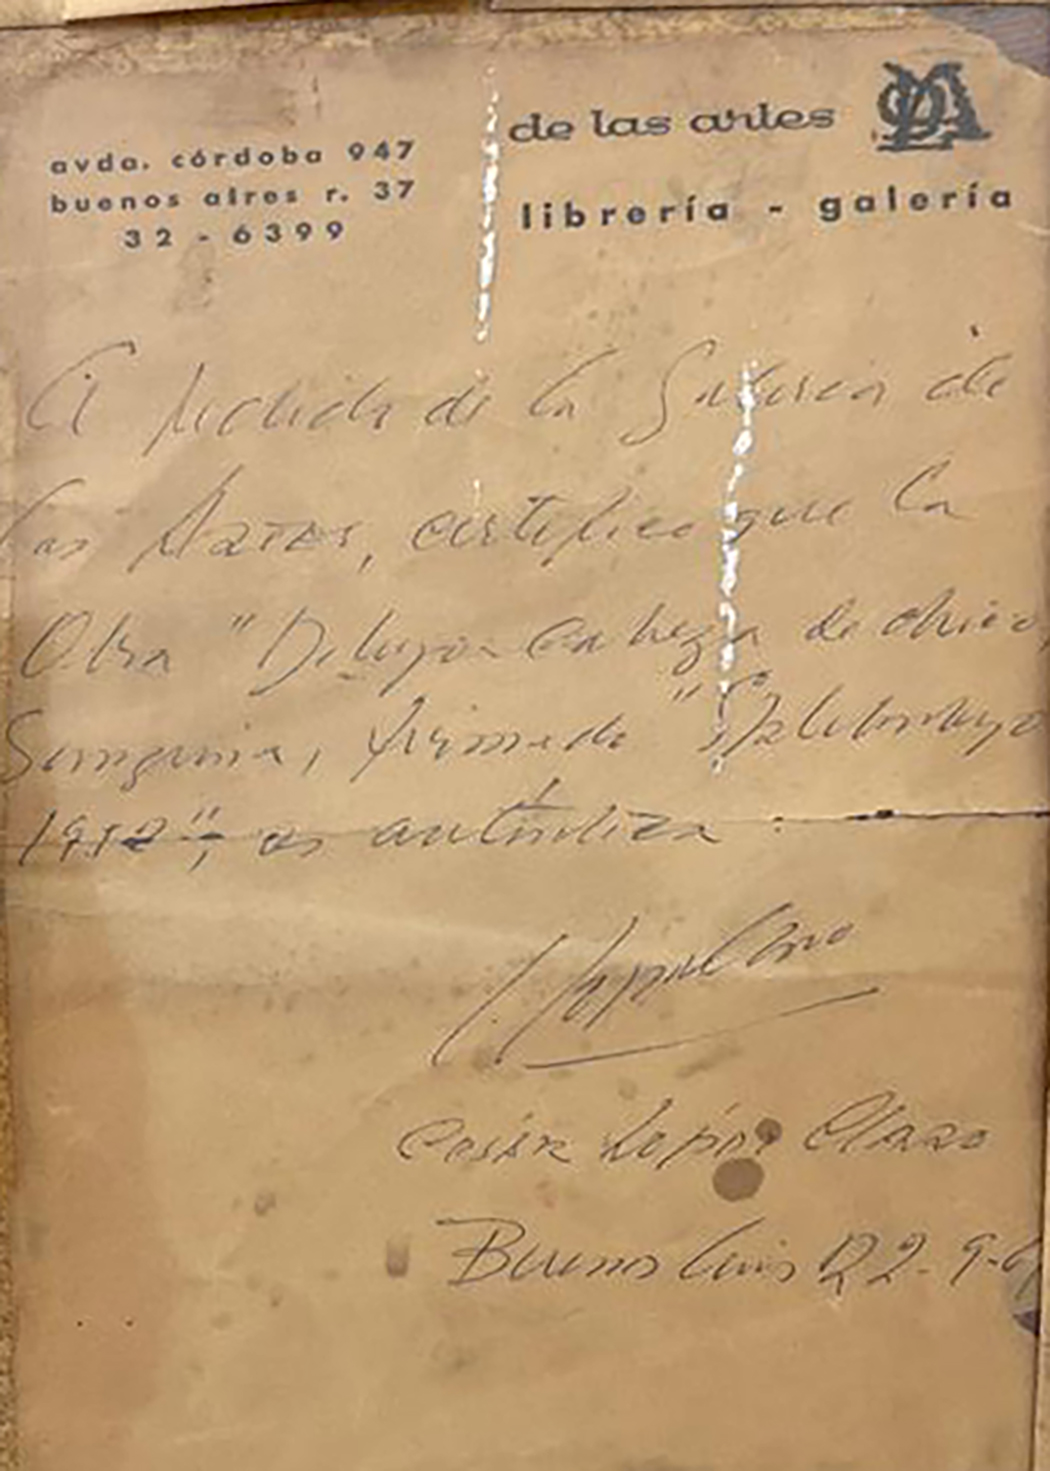 avda. córdoba 947
buenos aires r. 37
32 - 6399
de las artes
librería - galería
A pedido de la Galeria de
las Artes, certifico que la
Obra "Dibujo cabeza de chico,
Sanguina, firmado
es auténtica
Cesar Lopez Claro
Buenos Aires 22-9-